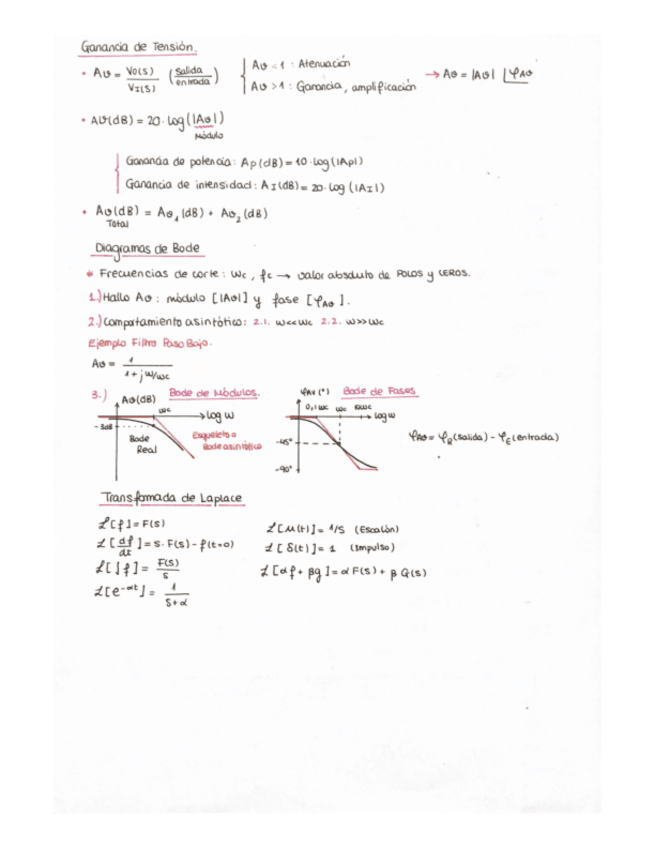 Ganancia de Tensión.
• Aυ = Vo(s) / VI(s) (salida / entrada) { Aυ < 1 : Atenuación
Aυ > 1 : Ganancia, amplificación → Aυ = |Aυ| ⌊φAυ
• Aυ(dB) = 20·log(|Aυ|)
Módulo
Ganancia de potencia: Ap(dB) = 10·log(|Ap|)
Ganancia de intensidad: AI(dB) = 20·log(|AI|)
• Aυ(dB) = Aυ1(dB) + Aυ2(dB)
Total
Diagramas de Bode
* Frecuencias de corte: ωc, fc → valor absoluto de POLOS y CEROS.
1.) Hallo Aυ: módulo [|Aυ|] y fase [φAυ].
2.) Comportamiento asintótico: 2.1. ω<<ωc 2.2. ω>>ωc
Ejemplo Filtro Paso Bajo.
Aυ = 1 / (1 + j ω/ωc)
3.) Aυ(dB) Bode de Módulos.
ωc
log ω
-3dB
Bode
Real
Esqueleto o
Bode asintótico
φAυ(°) Bode de Fases
0,1ωc ωc 10ωc
log ω
-45°
-90°
φAυ = φR(salida) - φE(entrada)
Transformada de Laplace
ℒ[f] = F(s)
ℒ[df/dt] = s·F(s) - f(t=0)
ℒ[∫f] = F(s)/s
ℒ[e^-αt] = 1/(s+α)
ℒ[μ(t)] = 1/s (Escalón)
ℒ[δ(t)] = 1 (Impulso)
ℒ[αf + βg] = αF(s) + βG(s)